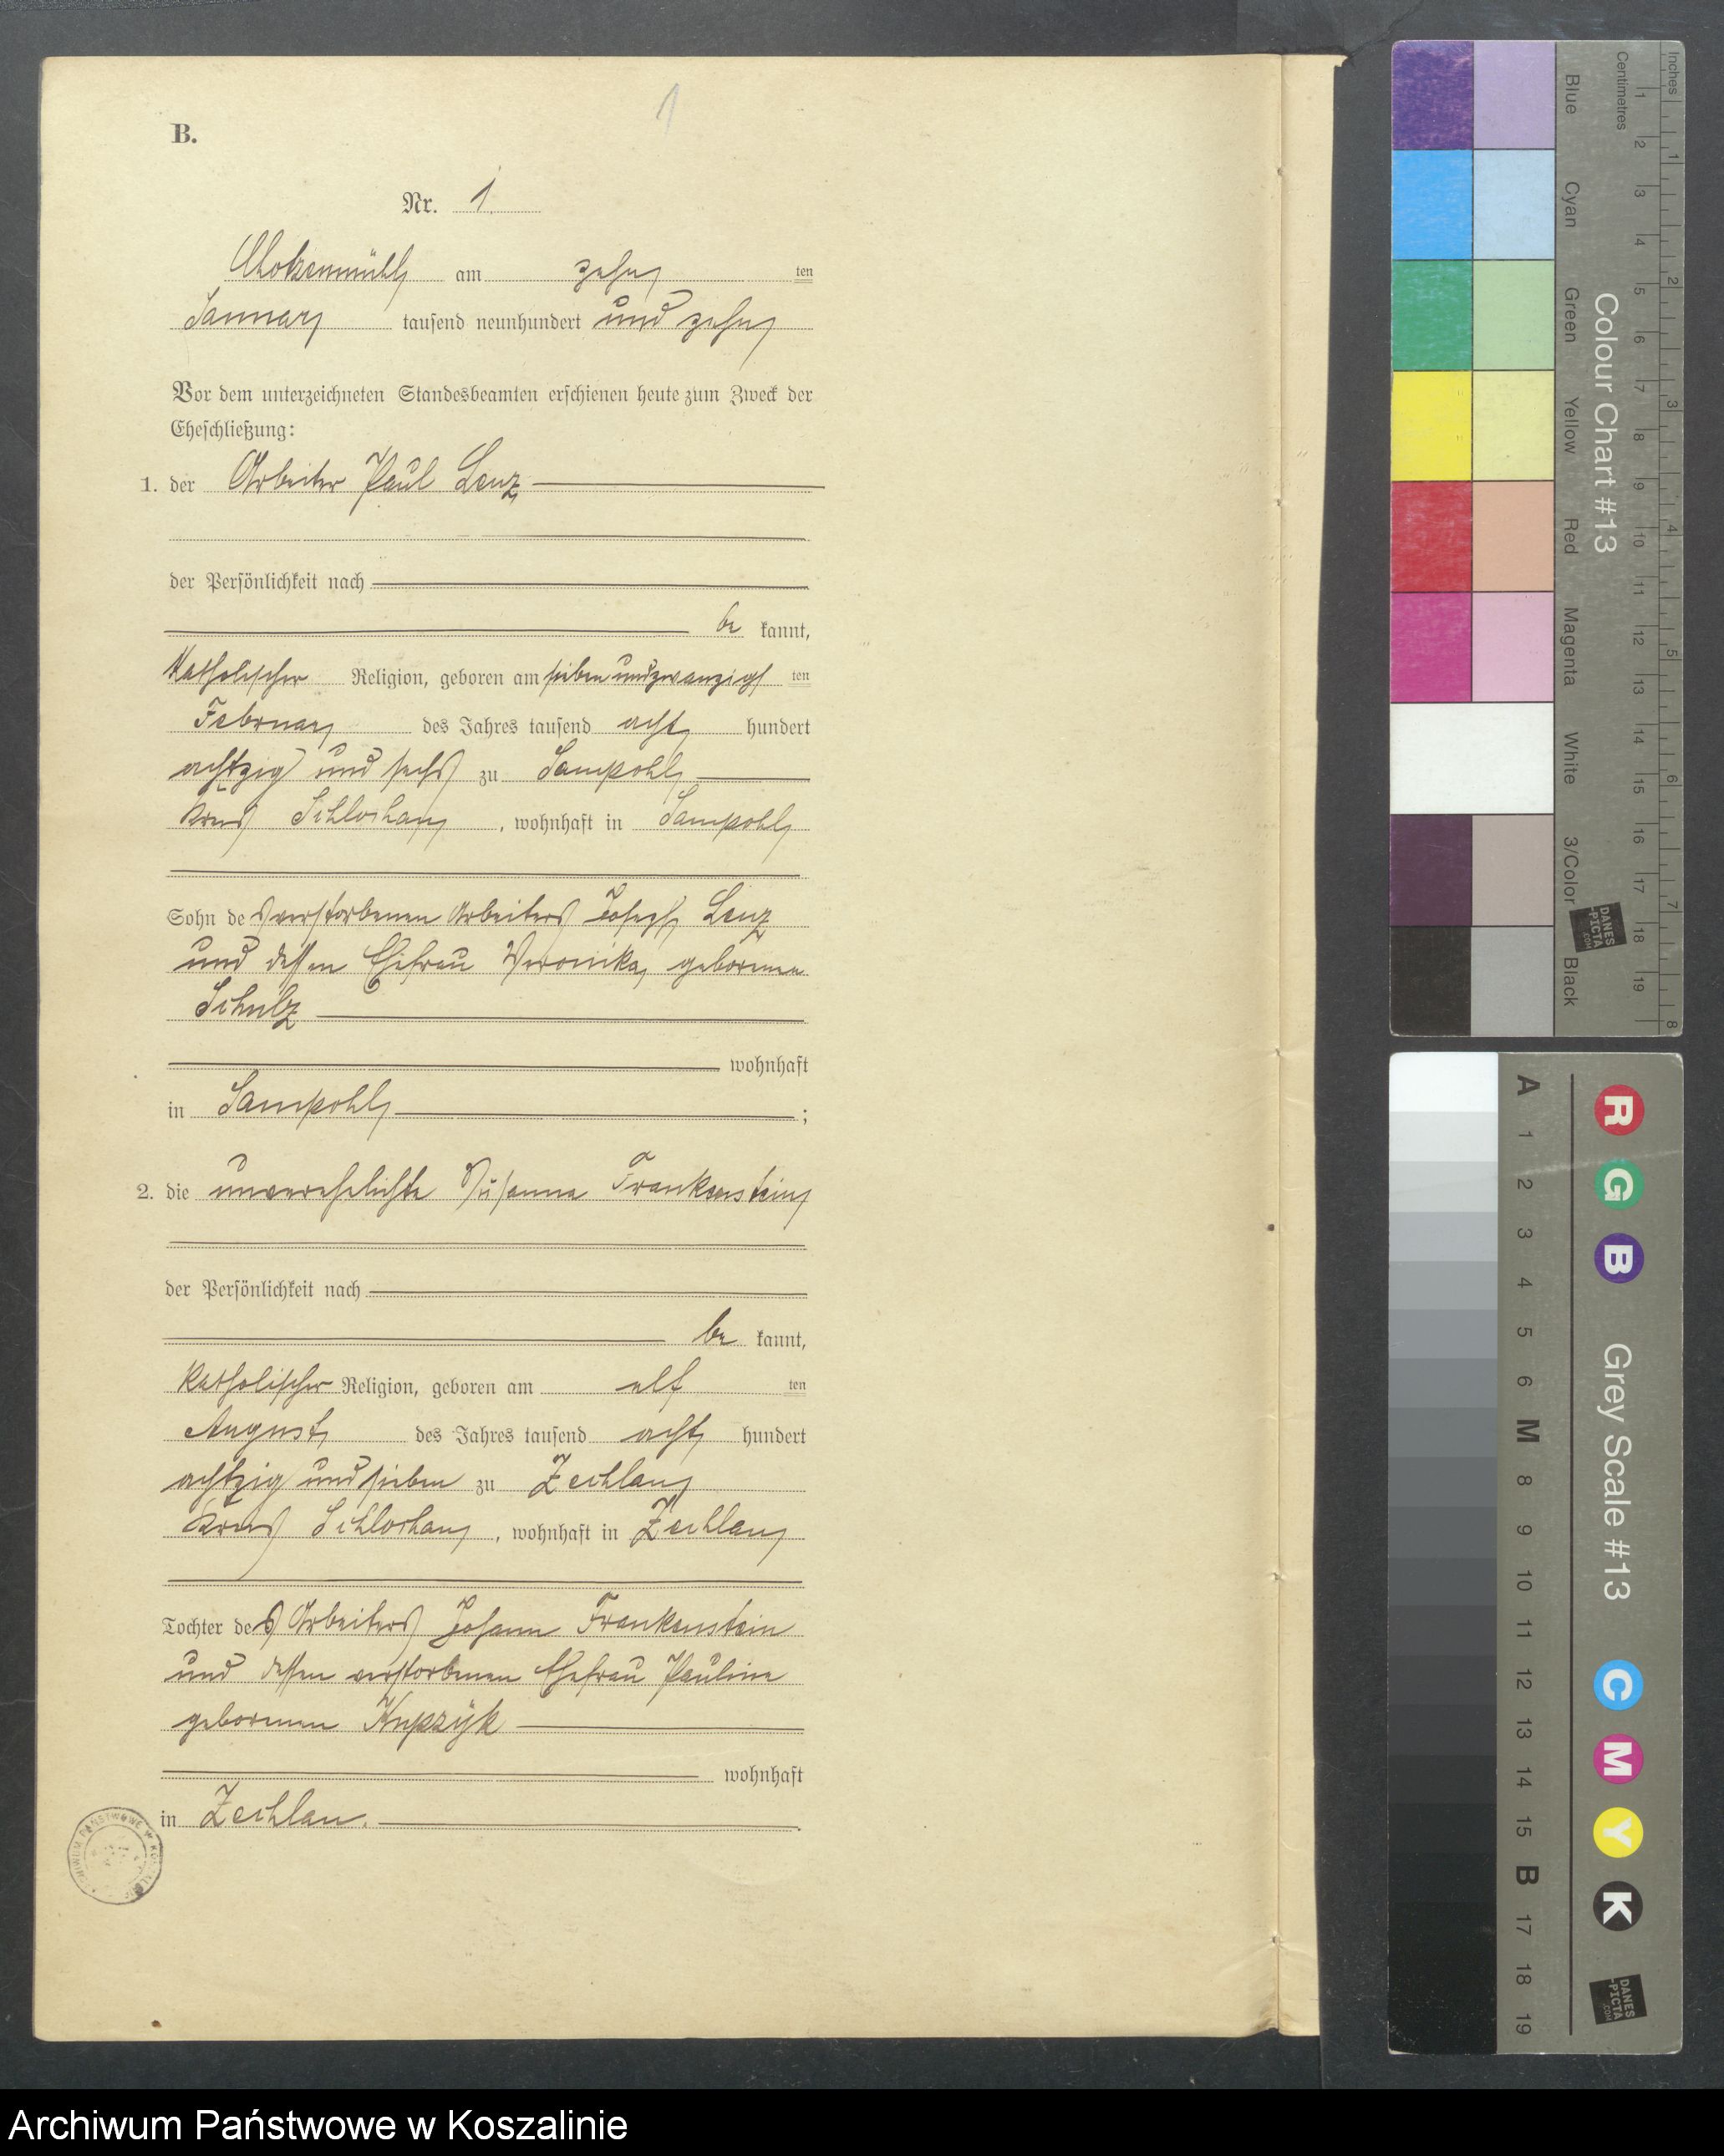 1
B.
Nr. 1.
Chotzenmühl am zehn ten
Januar tausend neunhundert und zehn
Vor dem unterzeichneten Standesbeamten erschienen heute zum Zweck der
Eheschließung:
1. der Arbeiter Paul Lenz
der Persönlichkeit nach
be kannt,
Katholischer Religion, geboren am siebenundzwanzigsten
Februar des Jahres tausend acht hundert
achtzig und sechs zu Sampohl
Kreis Schlochau, wohnhaft in Sampohl
Sohn des verstorbenen Arbeiters Joseph Lenz
und dessen Ehefrau Veronika, geborene
Schulz
wohnhaft
in Sampohl ;
2. die unverehelichte Susanna Frankenstein
der Persönlichkeit nach
be kannt,
katholischer Religion, geboren am elf ten
August des Jahres tausend acht hundert
achtzig und sieben zu Zechlau
Kreis Schlochau, wohnhaft in Zechlau
Tochter des Arbeiters Johann Frankenstein
und dessen verstorbenen Ehefrau Pauline
geborenen Kupzijk
wohnhaft
in Zechlau.
Archiwum Państwowe w Koszalinie
Colour Chart #13
Inches
Centimetres
Blue Cyan Green Yellow Red Magenta White 3/Color Black
1 2 3 4 5 6 7 8 9 10 11 12 13 14 15 16 17 18 19
1 2 3 4 5 6 7 8
DANES
-PICTA
.COM
Grey Scale #13
R G B C M Y K
A 1 2 3 4 5 6 M 8 9 10 11 12 13 14 15 B 17 18 19
DANES
-PICTA
.COM